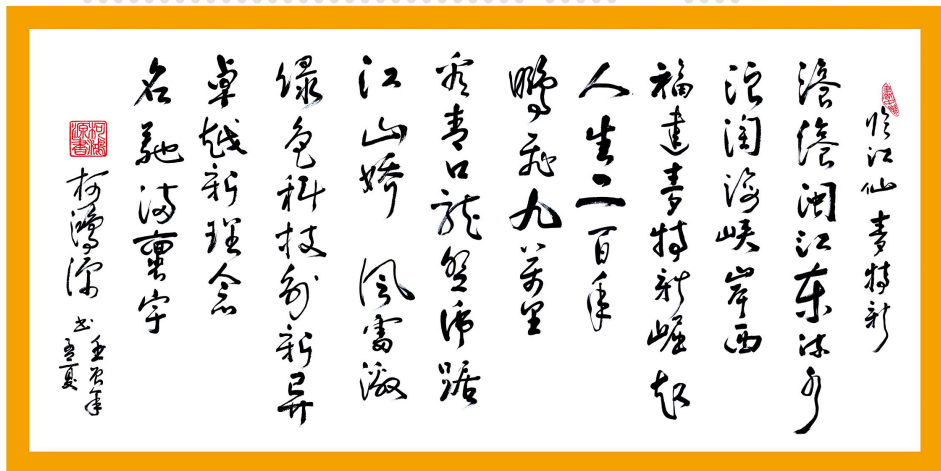 临江仙 麦特新
滚滚闽江东流水
浪淘海峡岸西
福建麦特新崛起
人生二百年
鹏飞九万里
看青口龙盘虎踞
江山娇 风雷激
绿色科技创新异
卓越新理念
名驰满寰宇
柯鸿源
壬辰年
孟夏
书
柯鸿源书